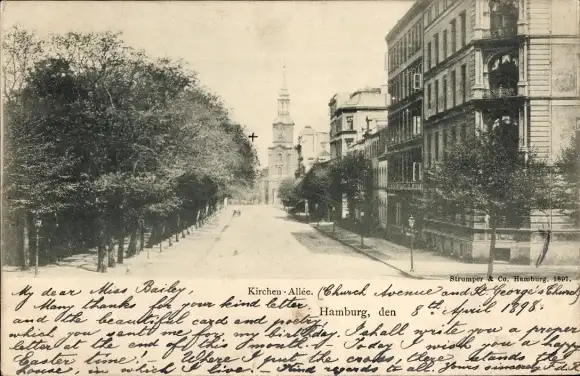 Strumper & Co. Hamburg, 1897.
My dear Miss Bailey, Kirchen-Allée. (Church Avenue and St. George's Church)
Many thanks for your kind letter Hamburg, den 8th April 1898.
and the beautiful card and poetry
which you sent me for my birthday. I shall write you a proper
letter at the end of this month. Today I wish you a happy
Easter time! Where I put the cross, there stands the
house, in which I live. – Kind regards to all. Yours sincerely